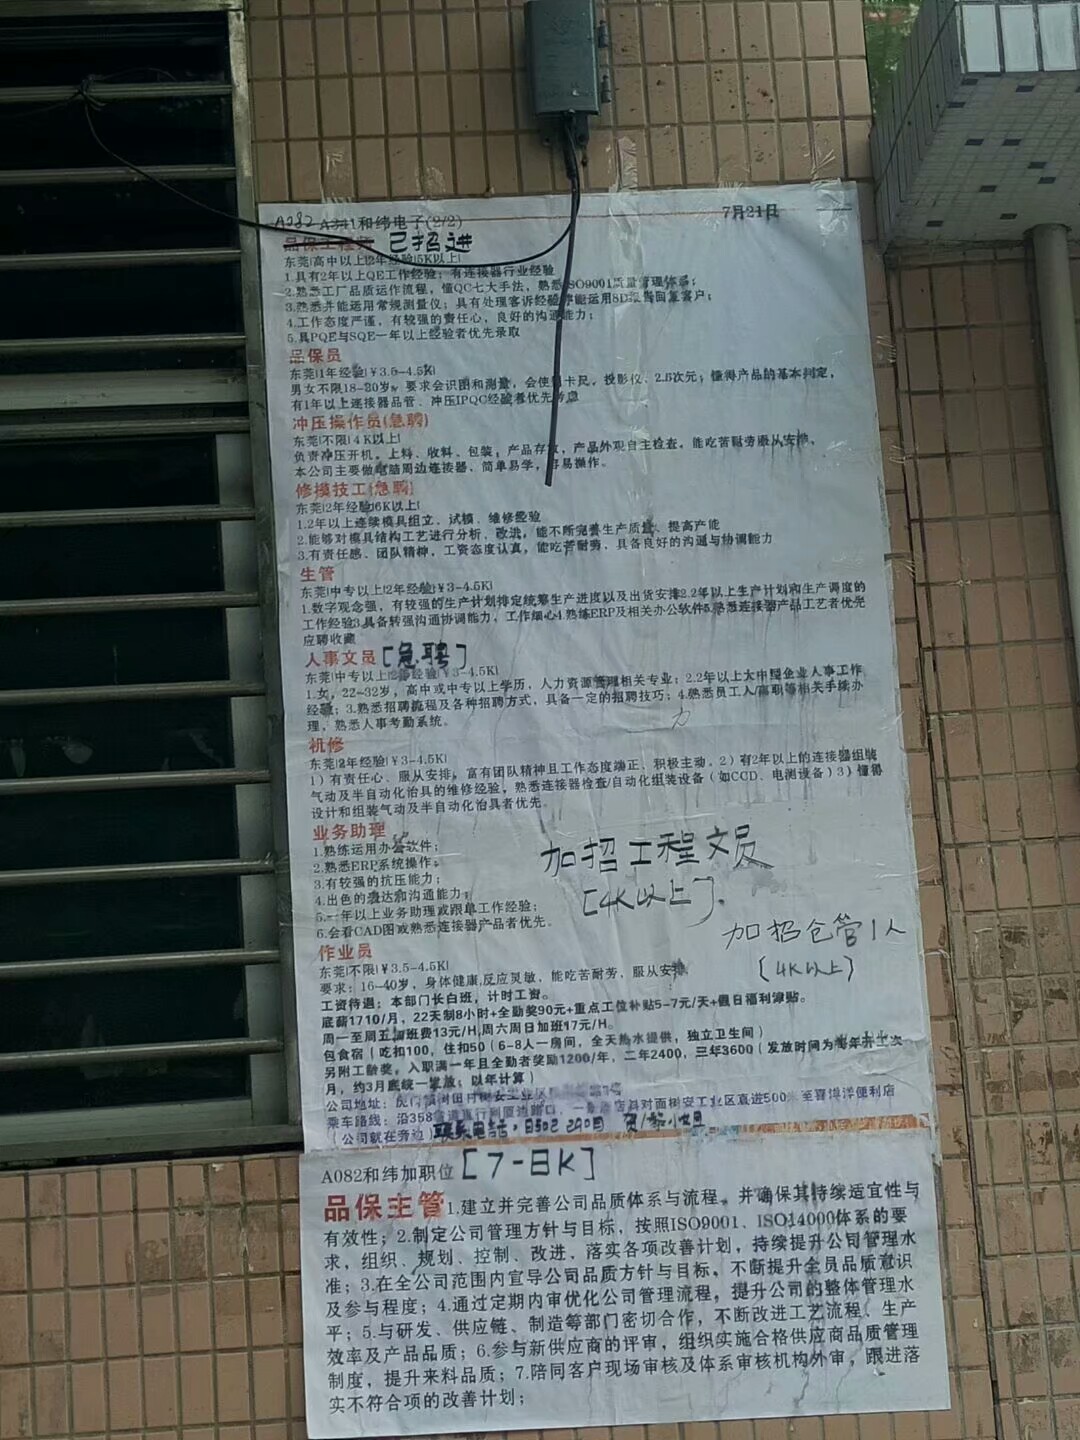 A082 A341和纬电子(2/2)
7月21日
品保工程员 已招进
东莞|高中以上|2年经验|5K以上|
1.具有2年以上QE工作经验；有连接器行业经验
2.熟悉工厂品质运作流程，懂QC七大手法，熟悉ISO9001质量管理体系；
3.熟悉并能运用常规测量仪；具有处理客诉经验并能运用8D报告回复客户；
4.工作态度严谨，有较强的责任心，良好的沟通能力；
5.具PQE与SQE一年以上经验者优先录取
品保员
东莞|1年经验|￥3.5-4.5K|
男女不限18-30岁，要求会识图和测量，会使用卡尺、投影仪、2.5次元；懂得产品的基本判定，
有1年以上连接器品管、冲压IPQC经验者优先考虑
冲压操作员(急聘)
东莞|不限|4K以上|
负责冲压开机，上料、收料、包装，产品存放，产品外观自主检查，能吃苦耐劳服从安排，
本公司主要做电脑周边连接器，简单易学，容易操作。
修模技工(急聘)
东莞|2年经验|6K以上|
1.2年以上连续模具组立、试模、维修经验
2.能够对模具结构工艺进行分析、改进，能不断完善生产质量、提高产能
3.有责任感、团队精神，工资态度认真，能吃苦耐劳、具备良好的沟通与协调能力
生管
东莞|中专以上|2年经验|￥3-4.5K|
1.数字观念强，有较强的生产计划排定统筹生产进度以及出货安排2.2年以上生产计划和生产调度的
工作经验3.具备转强沟通协调能力，工作细心4.熟练ERP及相关办公软件5.熟悉连接器产品工艺者优先
应聘收藏
人事文员[急聘]
东莞|中专以上|2年经验|￥3-4.5K|
1.女，22-32岁，高中或中专以上学历，人力资源管理相关专业；2.2年以上大中型企业人事工作
经验；3.熟悉招聘流程及各种招聘方式，具备一定的招聘技巧；4.熟悉员工入/离职等相关手续办
理，熟悉人事考勤系统。
力
机修
东莞|2年经验|￥3-4.5K|
1）有责任心、服从安排，富有团队精神且工作态度端正、积极主动。2）有2年以上的连接器组装
气动及半自动化治具的维修经验，熟悉连接器检查/自动化组装设备（如CCD、电测设备）3）懂得
设计和组装气动及半自动化治具者优先。
业务助理
1.熟练运用办公软件；
2.熟悉ERP系统操作；
3.有较强的抗压能力；
4.出色的表达和沟通能力；
5.一年以上业务助理或跟单工作经验；
6.会看CAD图或熟悉连接器产品者优先。
加招工程文员
[4K以上].
加招仓管1人
[4K以上]
作业员
东莞|不限|￥3.5-4.5K|
要求：16-40岁，身体健康,反应灵敏，能吃苦耐劳，服从安排
工资待遇：本部门长白班，计时工资。
底薪1710/月，22天制8小时+全勤奖90元+重点工位补贴5-7元/天+假日福利津贴。
周一至周五加班费13元/H,周六周日加班17元/H。
包食宿（吃扣100，住扣50（6-8人一房间，全天热水提供，独立卫生间）
另附工龄奖，入职满一年且全勤者奖励1200/年，二年2400，三年3600（发放时间为每年升工次
月，约3月底统一发放；以年计算）
公司地址：虎门镇树田村树安工业区
乘车路线：沿358省道直行到 路口，一 店斜对面树安工业区直进500米至喜得洋便利店
（公司就在旁边）联系电话：
A082和纬加职位[7-8K]
品保主管1.建立并完善公司品质体系与流程，并确保其持续适宜性与
有效性；2.制定公司管理方针与目标，按照ISO9001、ISO14000体系的要
求，组织、规划、控制、改进，落实各项改善计划，持续提升公司管理水
准；3.在全公司范围内宣导公司品质方针与目标，不断提升全员品质意识
及参与程度；4.通过定期内审优化公司管理流程，提升公司的整体管理水
平；5.与研发、供应链、制造等部门密切合作，不断改进工艺流程、生产
效率及产品品质；6.参与新供应商的评审，组织实施合格供应商品质管理
制度，提升来料品质；7.陪同客户现场审核及体系审核机构外审，跟进落
实不符合项的改善计划；